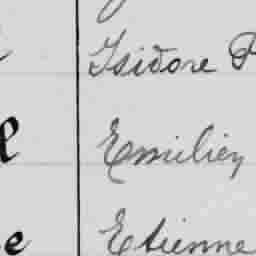 Isidore
Emilien
Etienne